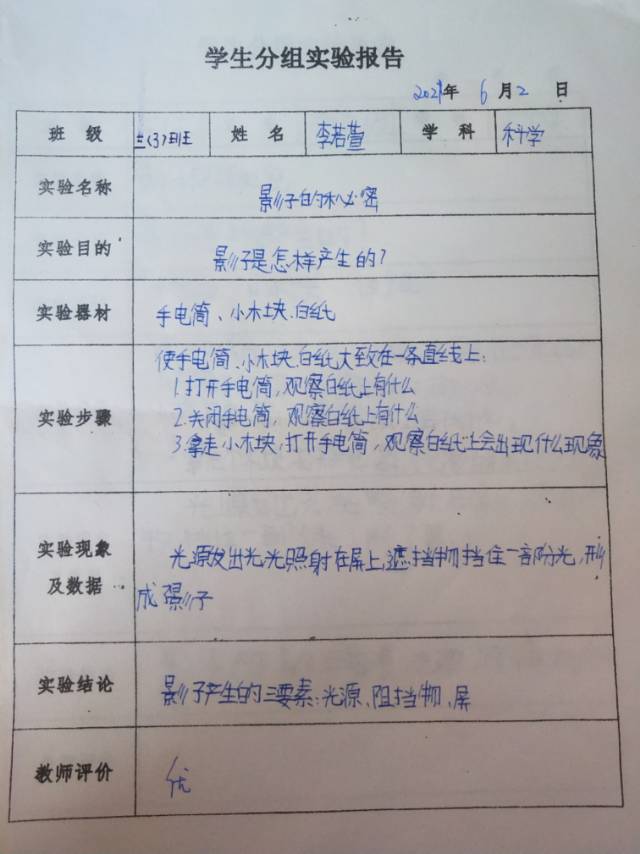 学生分组实验报告
2021年 6月2 日
班 级 三(3)班 姓 名 李若萱 学 科 科学
实验名称 影子的秘密
实验目的 影子是怎样产生的?
实验器材 手电筒、小木块.白纸
使手电筒、小木块.白纸大致在一条直线上:
1.打开手电筒,观察白纸上有什么
实验步骤 2.关闭手电筒,观察白纸上有什么
3.拿走小木块,打开手电筒,观察白纸上会出现什么现象
实验现象 光源发出光,光照射在屏上,遮挡物挡住一部分光,形
及数据 成影子
实验结论 影子产生的三要素:光源、阻挡物、屏
教师评价 优